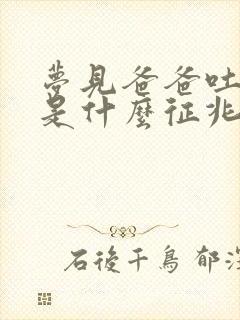 夢見爸爸吐
是什麼征兆
石後千鳥 郁